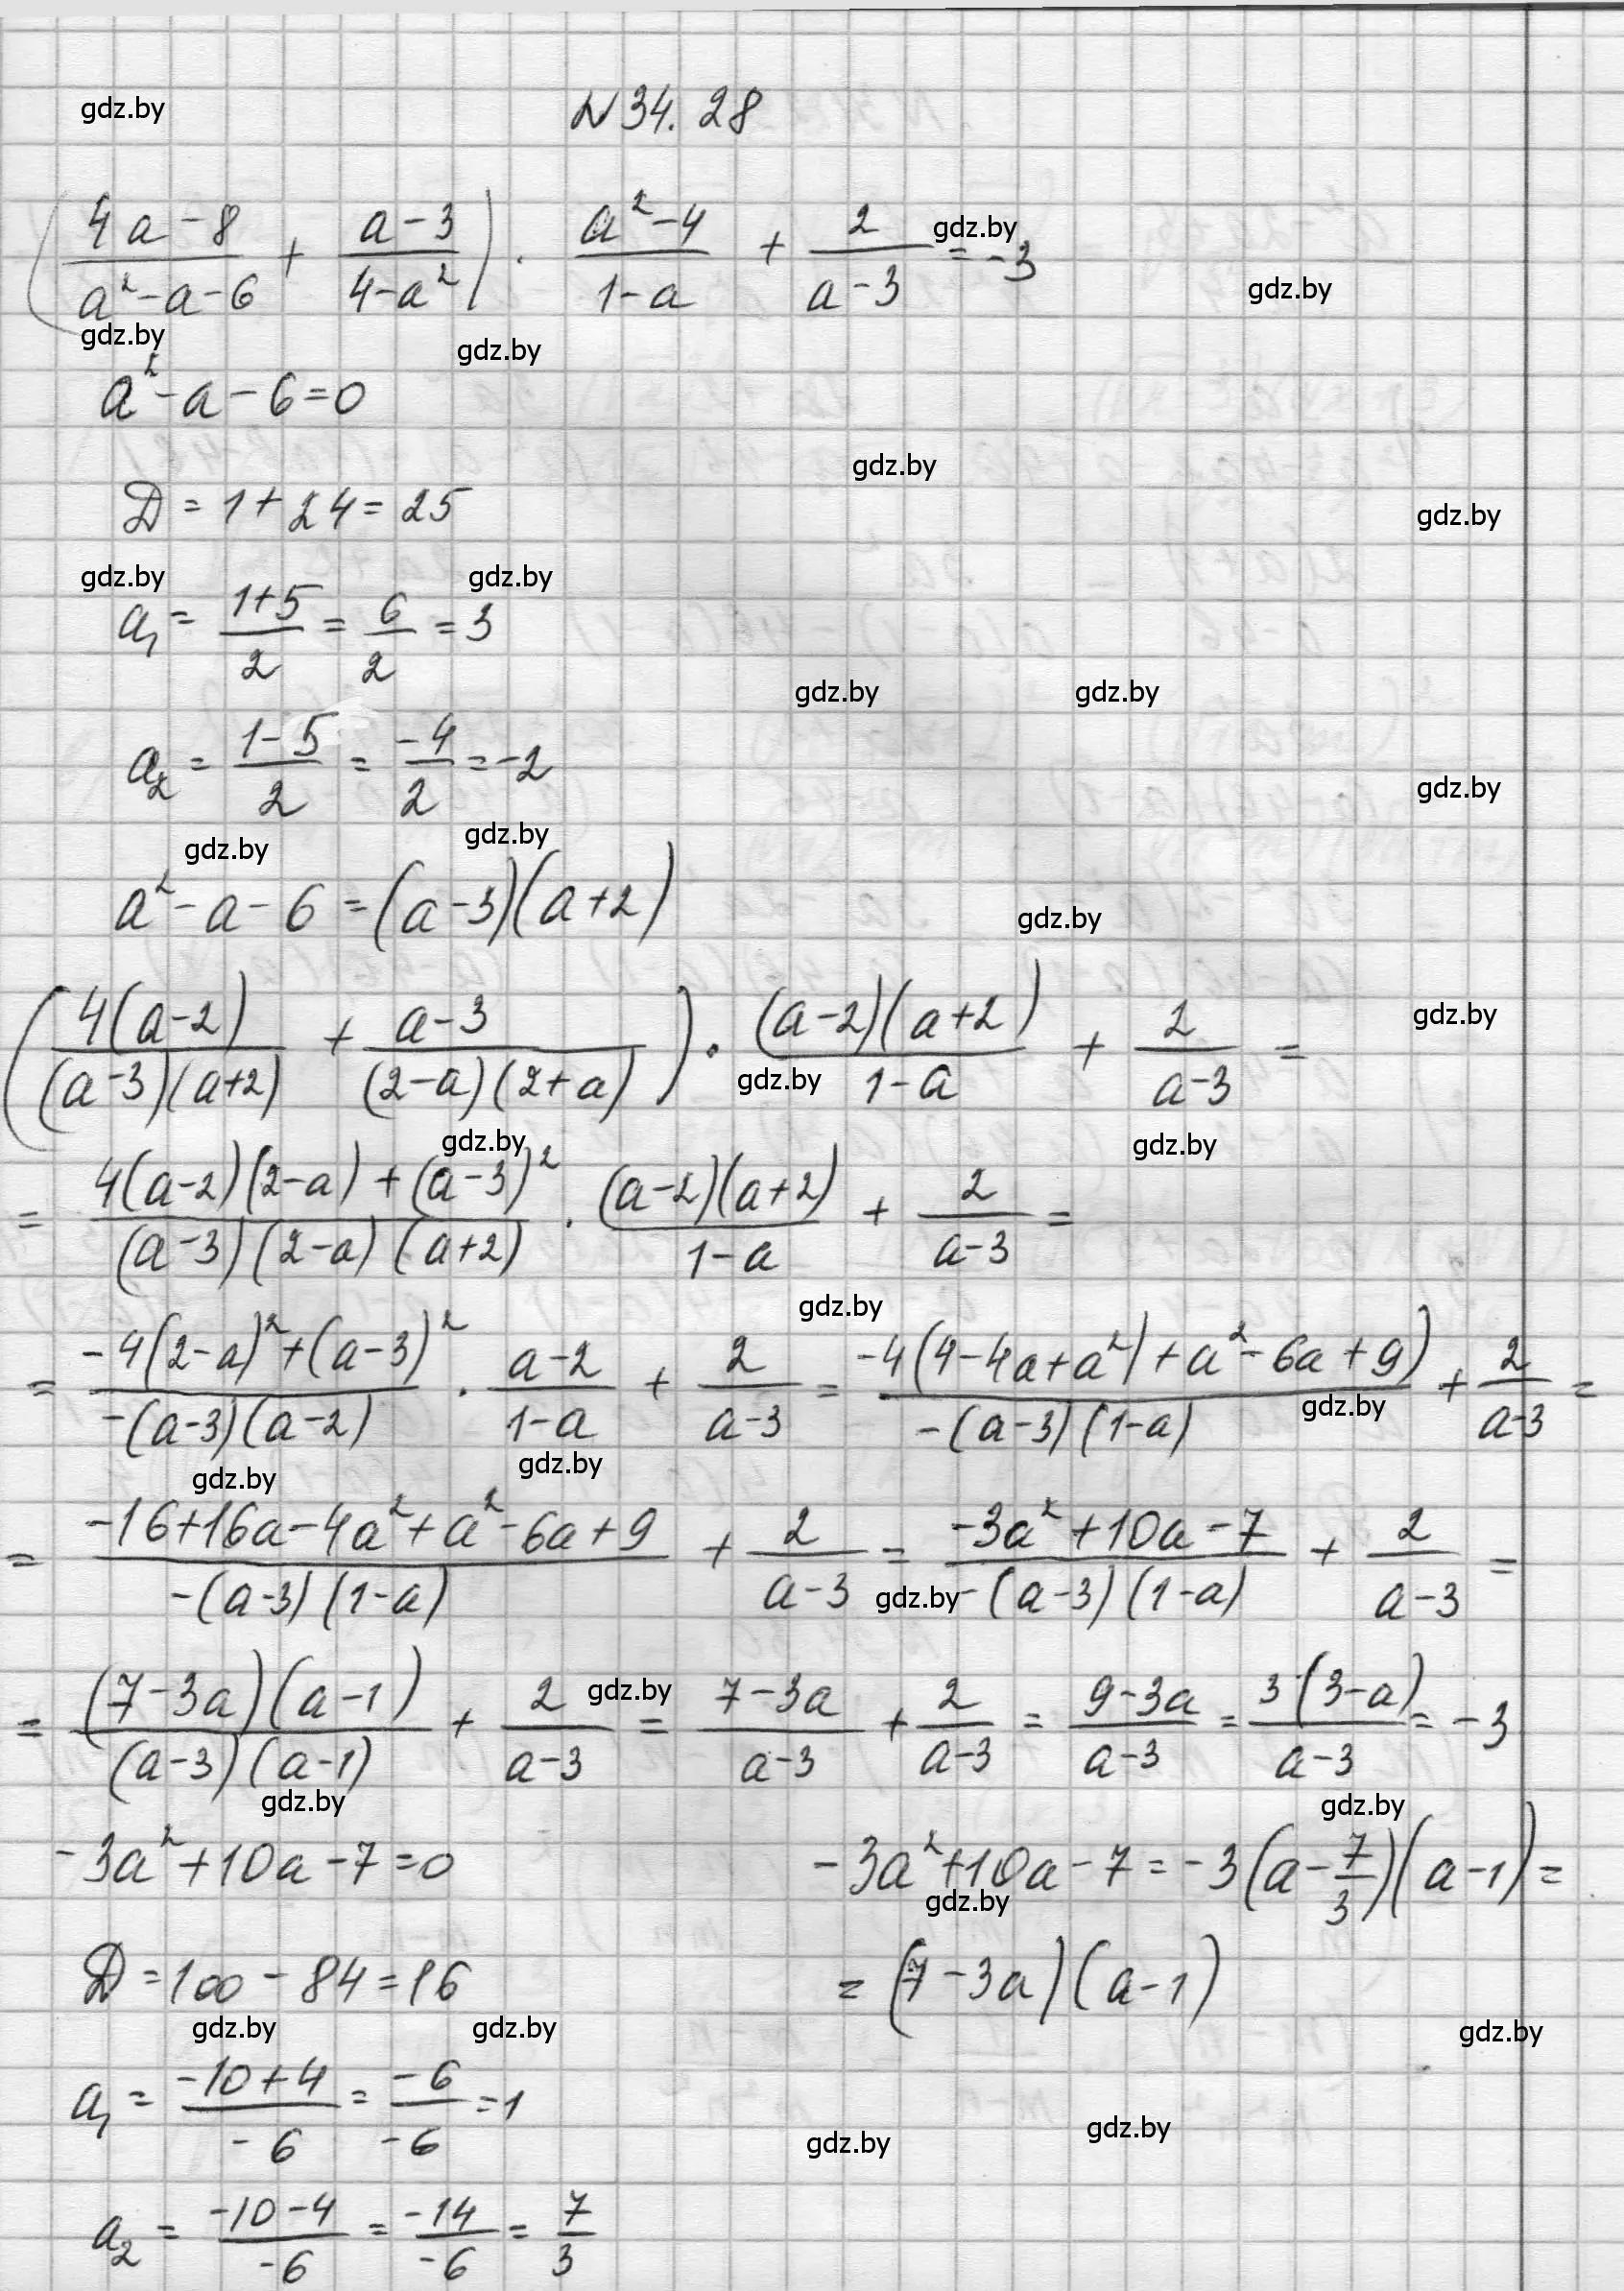 N 34. 28
gdz.by
(4a-8 / a²-a-6 + a-3 / 4-a²) · a²-4 / 1-a + 2 / a-3 = -3
gdz.by
gdz.by
gdz.by
gdz.by
a²-a-6=0
gdz.by
D = 1+24 = 25
gdz.by
gdz.by
gdz.by
a₁ = 1+5 / 2 = 6 / 2 = 3
gdz.by
gdz.by
a₂ = 1-5 / 2 = -4 / 2 = -2
gdz.by
gdz.by
gdz.by
a²-a-6 = (a-3)(a+2)
gdz.by
(4(a-2) / (a-3)(a+2) + a-3 / (2-a)(2+a)) · (a-2)(a+2) / 1-a + 2 / a-3 =
gdz.by
gdz.by
gdz.by
gdz.by
= 4(a-2)(2-a)+(a-3)² / (a-3)(2-a)(a+2) · (a-2)(a+2) / 1-a + 2 / a-3 =
gdz.by
= -4(2-a)²+(a-3)² / -(a-3)(a-2) · a-2 / 1-a + 2 / a-3 = -4(4-4a+a²)+a²-6a+9) / -(a-3)(1-a) + 2 / a-3 =
gdz.by
gdz.by
gdz.by
= -16+16a-4a²+a²-6a+9 / -(a-3)(1-a) + 2 / a-3 = -3a²+10a-7 / -(a-3)(1-a) + 2 / a-3 =
gdz.by
= (7-3a)(a-1) / (a-3)(a-1) + 2 / a-3 = 7-3a / a-3 + 2 / a-3 = 9-3a / a-3 = 3(3-a) / a-3 = -3
gdz.by
gdz.by
gdz.by
-3a²+10a-7=0
-3a²+10a-7 = -3(a-7/3)(a-1) =
gdz.by
D = 100-84 = 16
= (7-3a)(a-1)
gdz.by
gdz.by
gdz.by
a₁ = -10+4 / -6 = -6 / -6 = 1
gdz.by
gdz.by
a₂ = -10-4 / -6 = -14 / -6 = 7 / 3